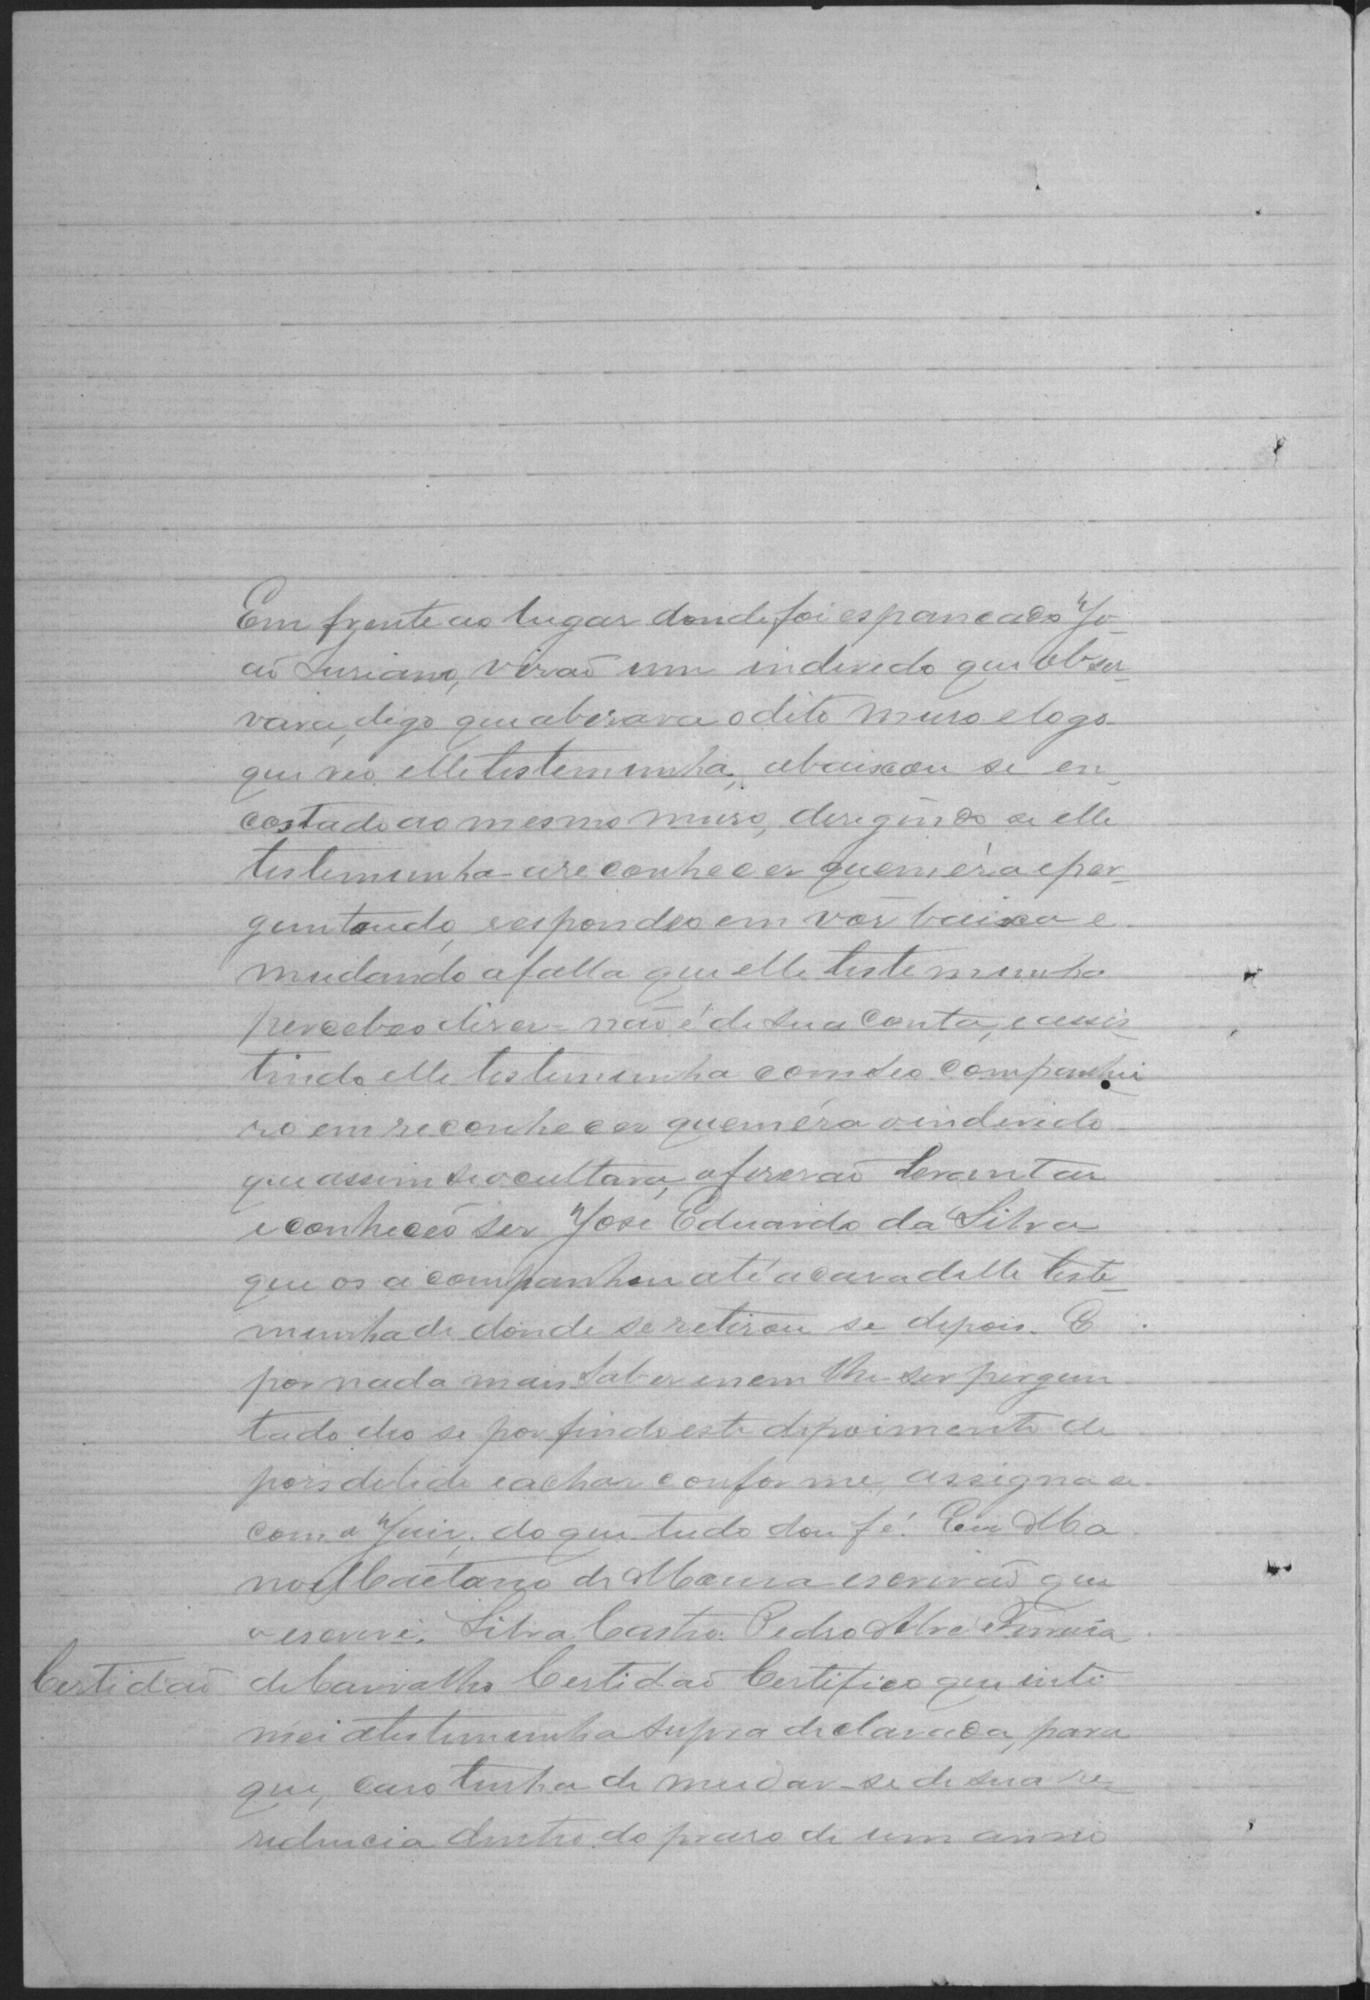 Em frente ao lugar donde foi espancado Jo-
ão Suriano, virão um indevido que obser-
vava, digo que abeirava o dito muro e logo
que veo elle testemunha, abaixou se en-
costado ao mesmo muro, deregindo se elle
testemunha a reconhecer quem éra e per-
guntando, respondeo em vós baixa e
mudando a falla que elle testemunha
percebeo diser - não é de sua conta, e ensis
tindo elle testemunha com seo companhei
ro em reconhecer quem éra o indevido
que assim se occultava, o fiserão levantar
e conheceo ser José Eduardo da Silva
que os acompanhou até a casa delle teste-
munha de donde se retirou se depois. E
por nada mais saber e nem lhe ser pergun
tado deo se por findo este depoimento de
pois de lido e achar conforme, assigna a
com o Juis, do que tudo dou fé. Eu Ma
noel Caetano de Moura escrivão que
o escrevi. Silva Castro. Pedro Alve Ferreira
Certidão de Carvalho Certidão Certifico que inti
mei a testemunha supra declarada, para
que, caso tenha de mudar-se de sua re-
sidencia dentro do praso de um anno